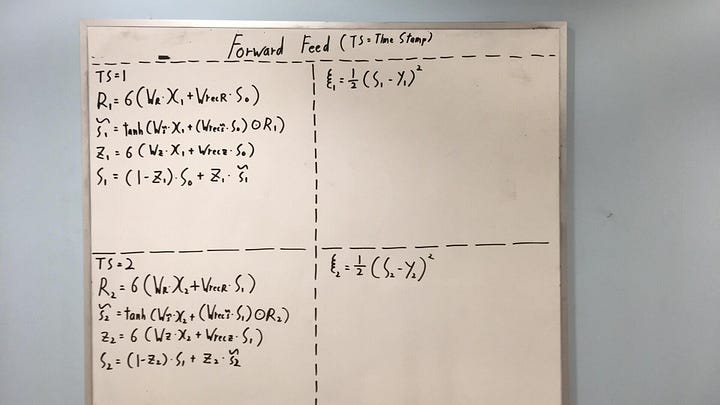 Forward Feed (TS=Time Stamp)
TS=1
R₁ = σ(W_R·X₁ + W_recR·S₀)
S̃₁ = tanh(W_S̃·X₁ + (W_recS̃·S₀) ⊙ R₁)
Z₁ = σ(W_Z·X₁ + W_recZ·S₀)
S₁ = (1-Z₁)·S₀ + Z₁·S̃₁
ξ₁ = 1/2 (S₁-Y₁)²
TS=2
R₂ = σ(W_R·X₂ + W_recR·S₁)
S̃₂ = tanh(W_S̃·X₂ + (W_recS̃·S₁) ⊙ R₂)
Z₂ = σ(W_Z·X₂ + W_recZ·S₁)
S₂ = (1-Z₂)·S₁ + Z₂·S̃₂
ξ₂ = 1/2 (S₂-Y₂)²